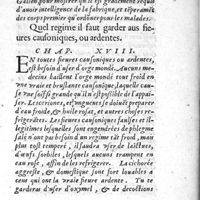 Galien pour monstrer qu'il est grandement requis
d'avoir intelligence de la fabrique, et
des corps premier qu'ordiner pour les malades.
Quel regime il faut garder aus fie
ures causoniques, ou ardentes.
CHAP. XVIII.
EN toutes fieures causoniques ou ardentes,
est besoin d'user d'orge mondé. Aucuns me
decins baillent l'orge mondé tout froid en
une vraie et brulante causonique, laquelle cau-
se une soif si grande qu'il n'est possible de l'appai-
ser. Les cerises, et
avec betes, froide, huile rosat, et autres choses re-
frigerātes. Les fieures causoniques fausses et il-
legitimes lesquelles sont engendrées de phlegme
salé, n'ont pas besoin d'un regime tāt froid, mais
plus tost temperé, il faudra user de laictues,
d'œufs sorbiles, lesquels aucuns trempent en
eau rose, affin de les refrigerer. La cichorée
agreste, & domestique sont fort louables à
ceux qui ont la vraie fieure ardente. Tu te
garderas d'user d'oxymel, & de decoctions